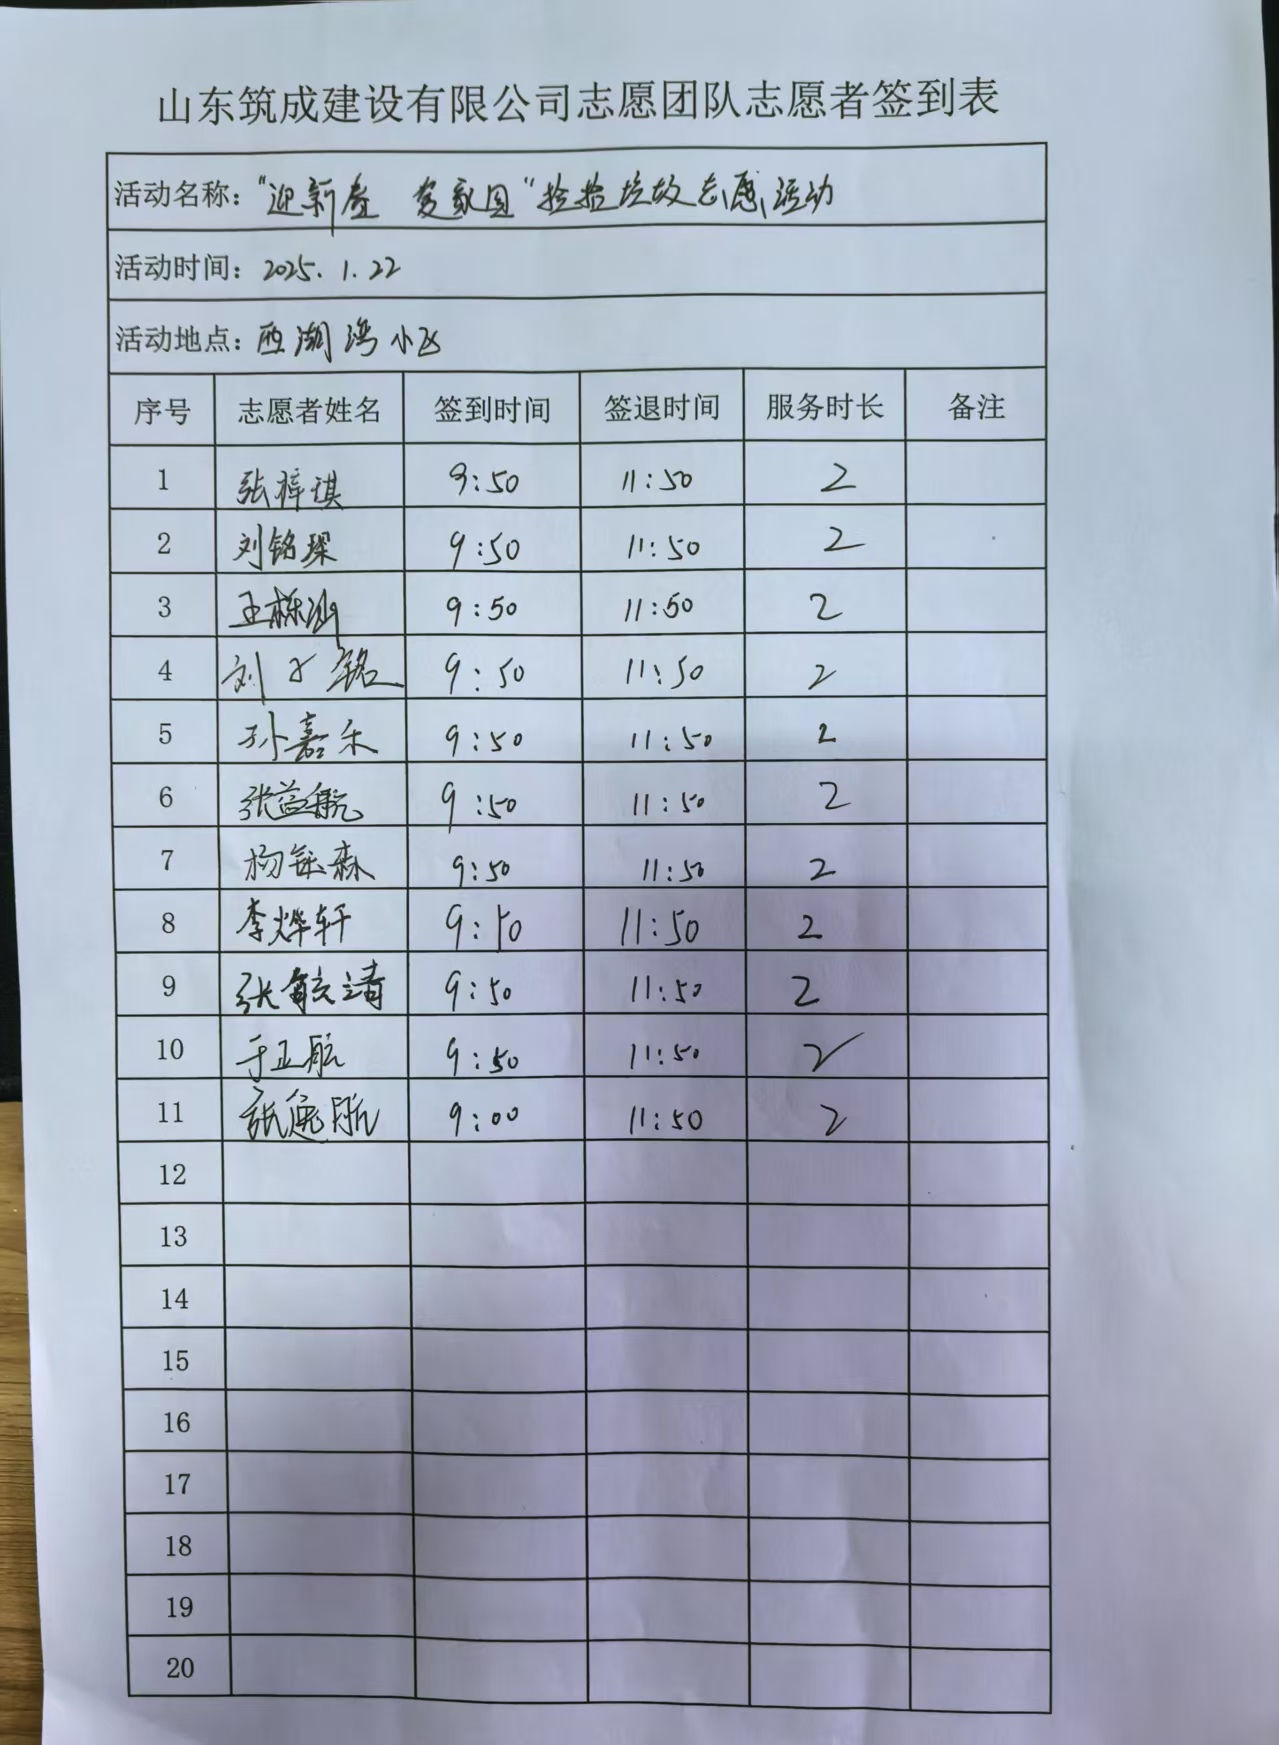 山东筑成建设有限公司志愿团队志愿者签到表
活动名称：“迎新春 爱家园”捡拾垃圾志愿活动
活动时间：2025.1.22
活动地点：西湖湾小区
序号 志愿者姓名 签到时间 签退时间 服务时长 备注
1 张梓琪 9:50 11:50 2
2 刘铭琛 9:50 11:50 2
3 王栎汕 9:50 11:50 2
4 刘子铭 9:50 11:50 2
5 孙嘉禾 9:50 11:50 2
6 张益航 9:50 11:50 2
7 杨森 9:50 11:50 2
8 李烨轩 9:50 11:50 2
9 张毓清 9:50 11:50 2
10 于正航 9:50 11:50 2
11 张航 9:00 11:50 2
12
13
14
15
16
17
18
19
20